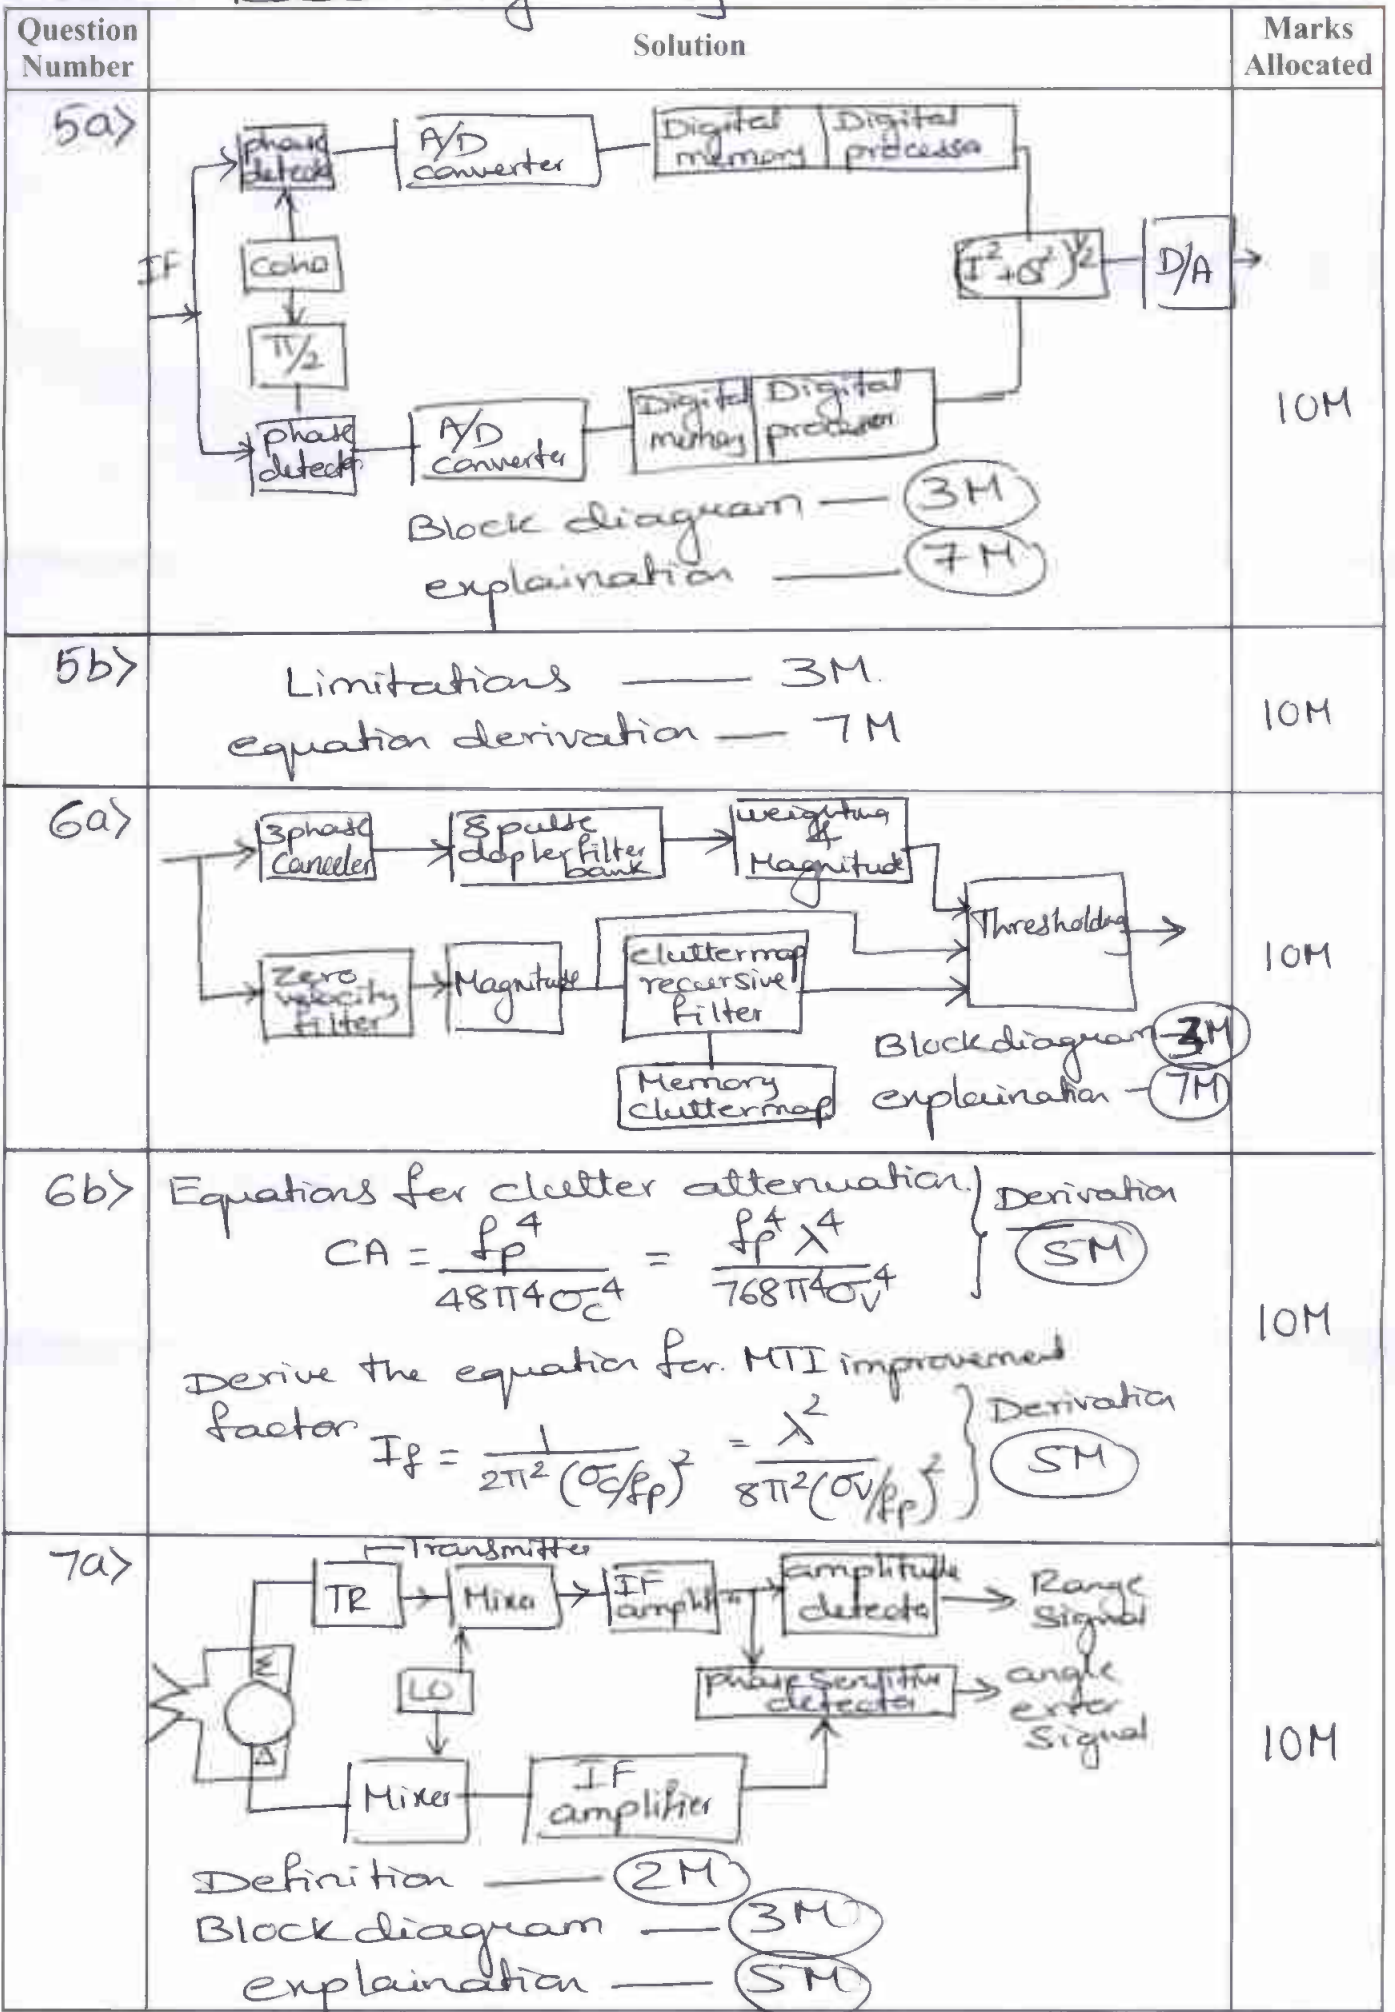 Question Number
Solution
Marks Allocated
5a>
phase detect
A/D converter
Digital memory
Digital processo
IF
Coho
π/2
(I²+Q²)^½
D/A
phase detector
A/D converter
Digital memory
Digital processor
10M
Block diagram — 3M
explaination — 7M
5b>
Limitations — 3M.
equation derivation — 7M
10M
6a>
3phase Canceler
8 pulse dopler filter bank
weighting & Magnitude
Thresholding
Zero velocity filter
Magnitude
cluttermap recursive filter
Memory cluttermap
10M
Blockdiagram - 3M
explaination - 7M
6b>
Equations for clutter attenuation.
CA = fp^4 / 48π^4σc^4 = fp^4 λ^4 / 768π^4σv^4
Derivation
5M
10M
Derive the equation for. MTI improvement
factor If = 1 / 2π²(σc/fp)² = λ² / 8π²(σv/fp)²
Derivation
5M
7a>
Transmitter
TR
Mixer
IF amplifi
amplitude detector
Range Signal
Σ
LO
phase Sensitive detector
angle error Signal
Δ
Mixer
IF amplifier
10M
Definition — 2M
Block diagram — 3M
explaination — 5M